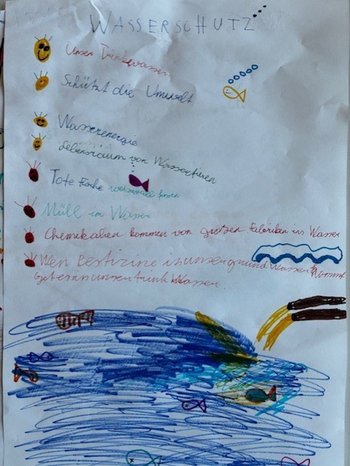 WASSERSCHUTZ
Unser Trinkwasser
Schützt die Umwelt
Wasserenergie
Lebensraum von Wassertieren
Tote Fische
Müll im Wasser
Chemikalien kommen von großen Fabriken ins Wasser
Wen Pestizine in unser grundwasser kommt
ist es in unserm trink Wasser.